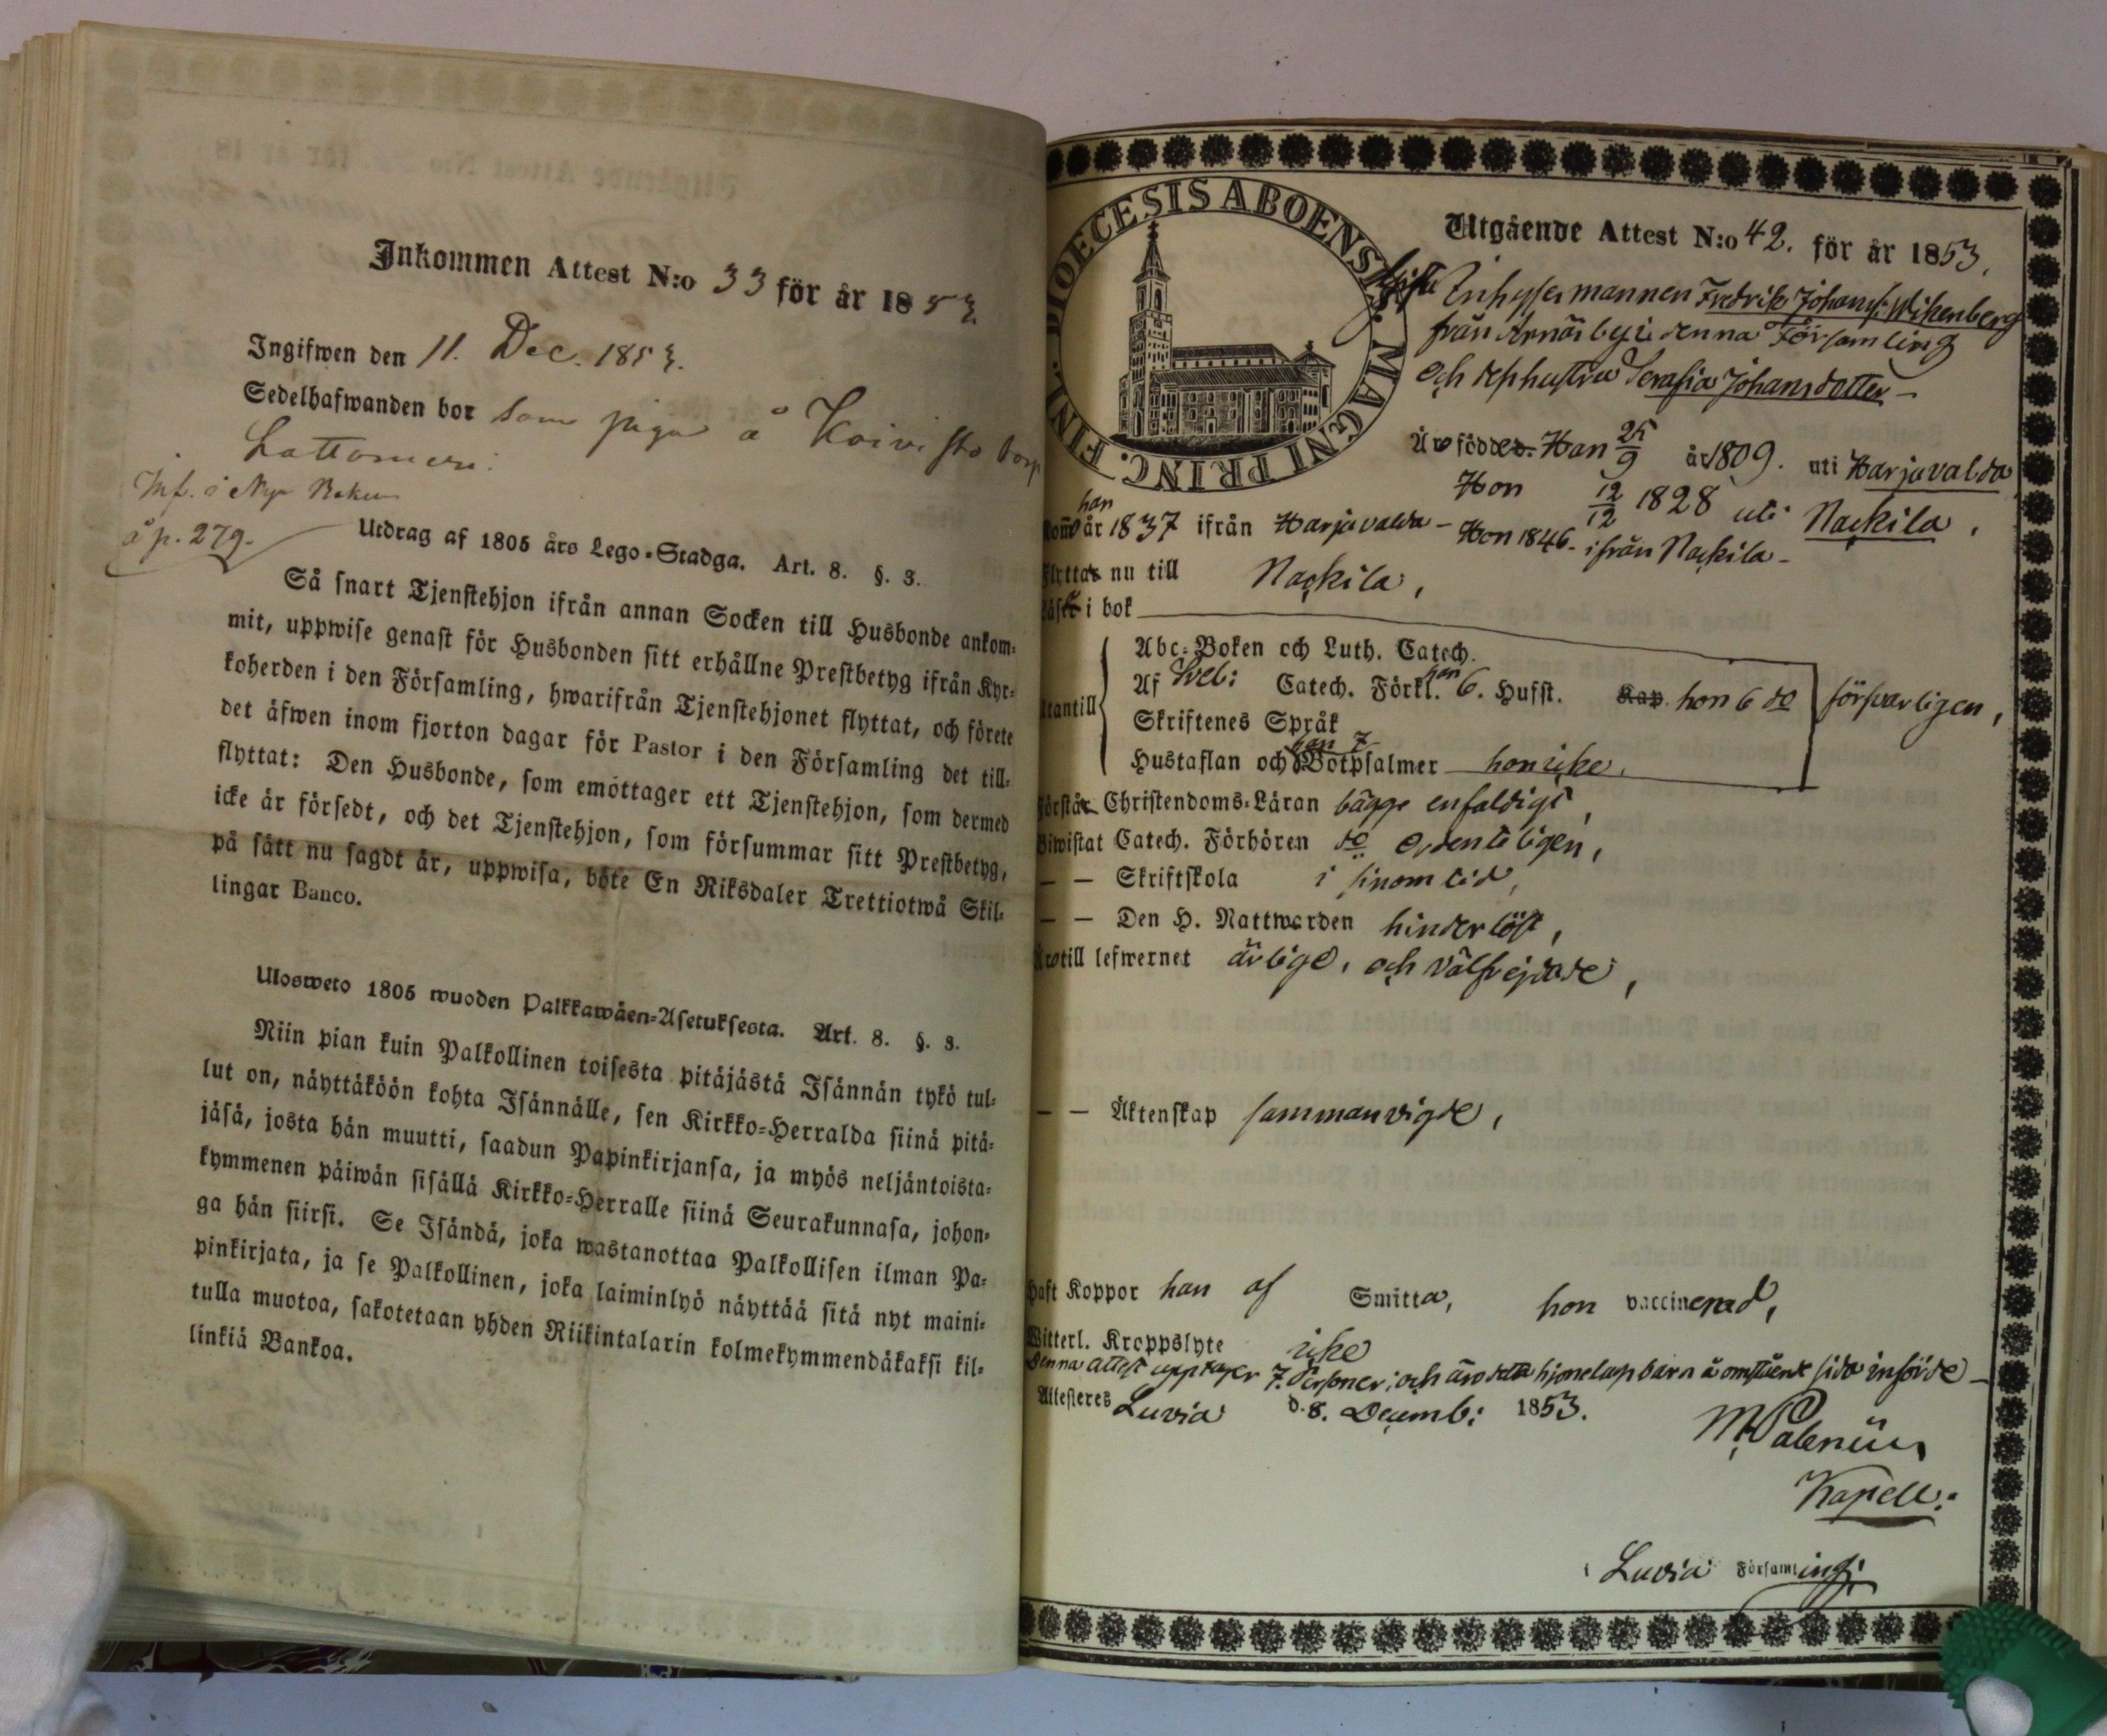 Inkommen Attest N:o 33 för år 1853
Ingifwen den 11. Dec. 1853.
Sedelhafwanden bor som piga å Koivisto torp
Lattomeri.
Inf. i Nya Boken
å p. 279.
Utdrag af 1805 års Lego-Stadga. Art. 8. §. 3.
Så snart Tjenstehjon ifrån annan Socken till Husbonde ankom-
mit, uppwise genast för Husbonden sitt erhållne Prestbetyg ifrån Kyr-
koherden i den Församling, hwarifrån Tjenstehjonet flyttat, och förete
det äfwen inom fjorton dagar för Pastor i den Församling det till-
flyttat: Den Husbonde, som emottager ett Tjenstehjon, som dermed
icke är försedt, och det Tjenstehjon, som försummar sitt Prestbetyg,
på sätt nu sagdt är, uppwisa, böte En Riksdaler Trettiotwå Skil-
lingar Banco.
Ulosweto 1805 wuoden Palkkawäen-Asetuksesta. Art. 8. §. 3.
Niin pian kuin Palkollinen toisesta pitäjästä Isännän tykö tul-
lut on, näyttäköön kohta Isännälle, sen Kirkko-Herralda siinä pitä-
jäsä, josta hän muutti, saadun Papinkirjansa, ja myös neljäntoista-
kymmenen päiwän sisällä Kirkko-Herralle siinä Seurakunnasa, johon-
ga hän siirsi. Se Isändä, joka wastanottaa Palkollisen ilman Pa-
pinkirjata, ja se Palkollinen, joka laiminlyö näyttää sitä nyt maini-
tulla muotoa, sakotetaan yhden Riikintalarin kolmekymmendäkaksi kil-
linkiä Bankoa.
DIOECESIS ABOENSIS. MAGNI PRINC. FINL.
Utgående Attest N:o 42. för år 1853.
Inhyses mannen Fredrik Johanss: Wikenberg
från Arnäs by i denna Församling
och dess hustru Serafia Johansdotter –
Äro födde. Han 25/9 år 1809. uti Harjavalda
Hon 12/12 1828 uti Nackila.
Kom han år 1837 ifrån Harjavalda – Hon 1846 – ifrån Nackila –
Flyttar nu till Nackila,
Läser i bok
Utantill
Abc-Boken och Luth. Catech.
Af Sveb: Catech. Förkl. han 6. Hufst. Kap. hon 6 do försvarligen,
Skriftenes Språk
Hustaflan och han 7 Botpsalmer hon icke.
Förstår Christendoms-Läran bägge enfaldigt,
Biwistat Catech. Förhören do ordenteligen,
— — Skriftskola i sinom tid,
— — Den H. Nattwarden hinderlöst,
Äro till lefwernet ärlige, och välfrejdade,
— — Äktenskap sammanvigde,
Haft Koppor han af Smitta, hon vaccinerad,
Witterl. Kroppslyte icke
Denna attest upptager 7. Personer; och äro detta hjonelags barn å omstående sida införde –
Attesteres Luvia d. 8. Decemb: 1853.
M. Palenius
Kapell:
i Luvia Församling.